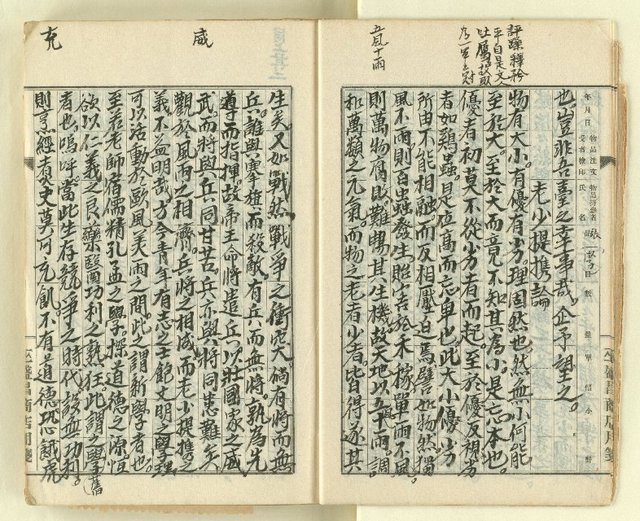 評躁釋矜
平自是文人
五風十雨
也豈非吾臺之幸事哉企予望之
老少提携論
物有大小有優有劣理固然也然無小何能
至於大至於大而竟不知其為小是忘本也
優者初莫不從小劣者而起至於優反視劣
者如雞蟲是位高而忘卑也此大小優劣
所由不能相融而反相壓迫焉譬如物然獨
風不雨則百蟲發生照古禾稼單雨不風
則萬物腐敗難暢其生機故天地以五風十雨調
和萬類之元氣而物之老者少者皆得遂其
咸
充
生矣又如戰然戰爭之衝突倘有將而無
兵誰與搴旗而殺敵有兵而無將孰為先
導而指揮故帝王命將遣兵以壯國家之威
武而將與兵同甘苦兵亦與將同患難矣
觀於風雨之相濟兵將之相成而老少提携之
義不益明哉方今青年有志之士飽文明之學理
可以活動於歐風美雨之間此之謂新學者也
至若老師宿儒精孔孟之學探道德之源恒
欲以仁義之良藥醫功利之熱狂此謂之舊學
者也嗚呼當此生存競爭之時代設無功利
則烹經煮史莫可充飢不有道德恐餓虎